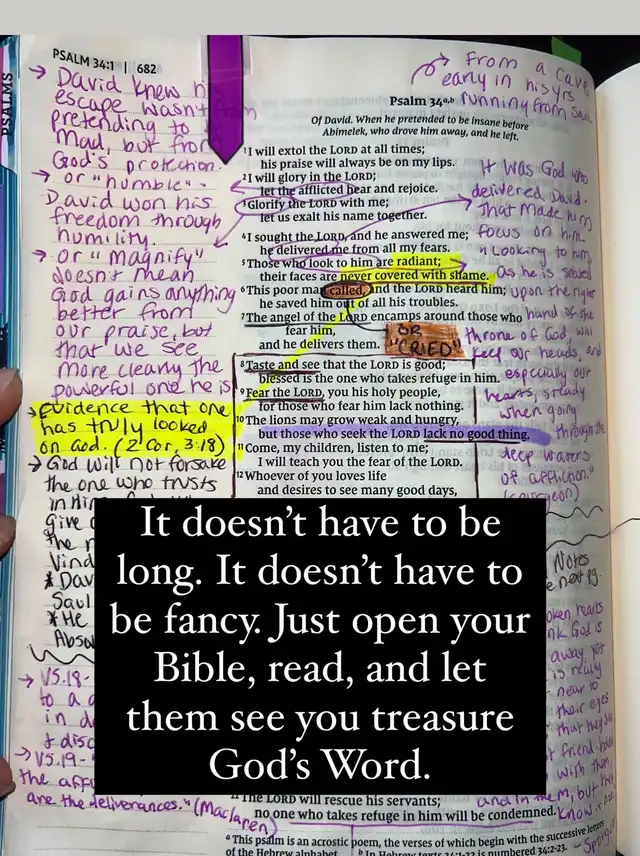 PSALM 34:1 | 682
PSALMS
→ David knew
escape wasn't from
pretending to be
mad, but from
God's protection.
→ or "humble".
David won his
freedom through
humility.
→ or "magnify"
doesn't mean
God gains anything
better from
our praise, but
that we see
more clearly the
powerful one he is
→ evidence that one
has truly looked
on God. (2 Cor. 3:18)
→ God will not forsake
the one who trusts
in Him
Give
the
Vind
* Dav
Saul
* He
Abso
→ V5.18-
to a
in d
& disc
→ V5.19-
the affl
are the deliverances." (Maclaren)
→ From a cave
early in his yrs
running from Saul
Psalm 34a,b
Of David. When he pretended to be insane before
Abimelek, who drove him away, and he left.
1 I will extol the LORD at all times;
his praise will always be on my lips.
2 I will glory in the LORD;
let the afflicted hear and rejoice.
3 Glorify the LORD with me;
let us exalt his name together.
4 I sought the LORD, and he answered me;
he delivered me from all my fears.
5 Those who look to him are radiant;
their faces are never covered with shame.
6 This poor man called, and the LORD heard him;
he saved him out of all his troubles.
7 The angel of the LORD encamps around those who
fear him,
and he delivers them.
OR
"CRIED"
8 Taste and see that the LORD is good;
blessed is the one who takes refuge in him.
9 Fear the LORD, you his holy people,
for those who fear him lack nothing.
10 The lions may grow weak and hungry,
but those who seek the LORD lack no good thing.
11 Come, my children, listen to me;
I will teach you the fear of the LORD.
12 Whoever of you loves life
and desires to see many good days,
It was God who
delivered David.
That made him
focus on him
"Looking to him,
as he is seated
upon the right
hand of the
throne of God, will
keep our heads, and
especially our
hearts, steady
when going
through the
deep waters
of affliction."
(Spurgeon)
Notes
next pg.
oken hearts
nk God is
away yet
is really
near to
their eyes
that they see
t friend
with them,
and in them, but they
know
It doesn't have to be
long. It doesn't have to
be fancy. Just open your
Bible, read, and let
them see you treasure
God's Word.
The LORD will rescue his servants;
no one who takes refuge in him will be condemned.
a This psalm is an acrostic poem, the verses of which begin with the successive letters
of the Hebrew alphabet. b In Hebrew texts 34:1-22 is numbered 34:2-23.